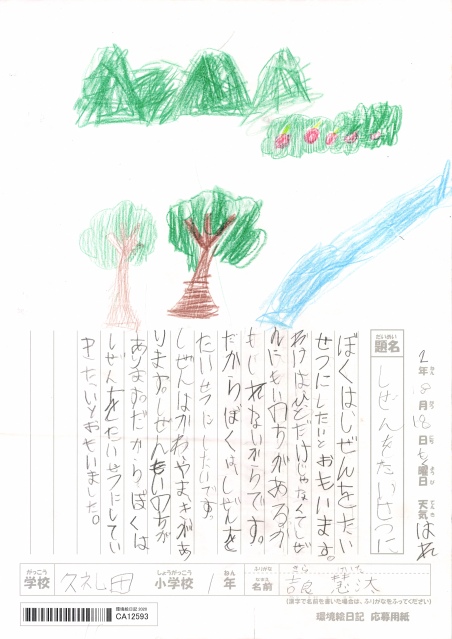 2年8月18日 曜日 天気 はれ
ねん がつ にち ようび てんき
だいめい
題名 しぜんをたいせつに
ぼくは、しぜんをたい
せつにしたいとおもいます。
わけはひとだけじゃなくてしぜ
んにもいのちがあるか
もしれないからです。
だからぼくは、しぜんを
たいせつにしたいです。
しぜんはかわややまやきがあ
ります。しぜんもいのちが
あります。だからぼくは
しぜんをたいせつにしてい
きたいとおもいました。
がっこう しょうがっこう ねん ふりがな
学校 久礼田 小学校 1年 なまえ 名前 吉良 慧汰
(漢字で名前を書いた場合は、ふりがなをふってください)
環境絵日記 2020
CA12593
環境絵日記 応募用紙